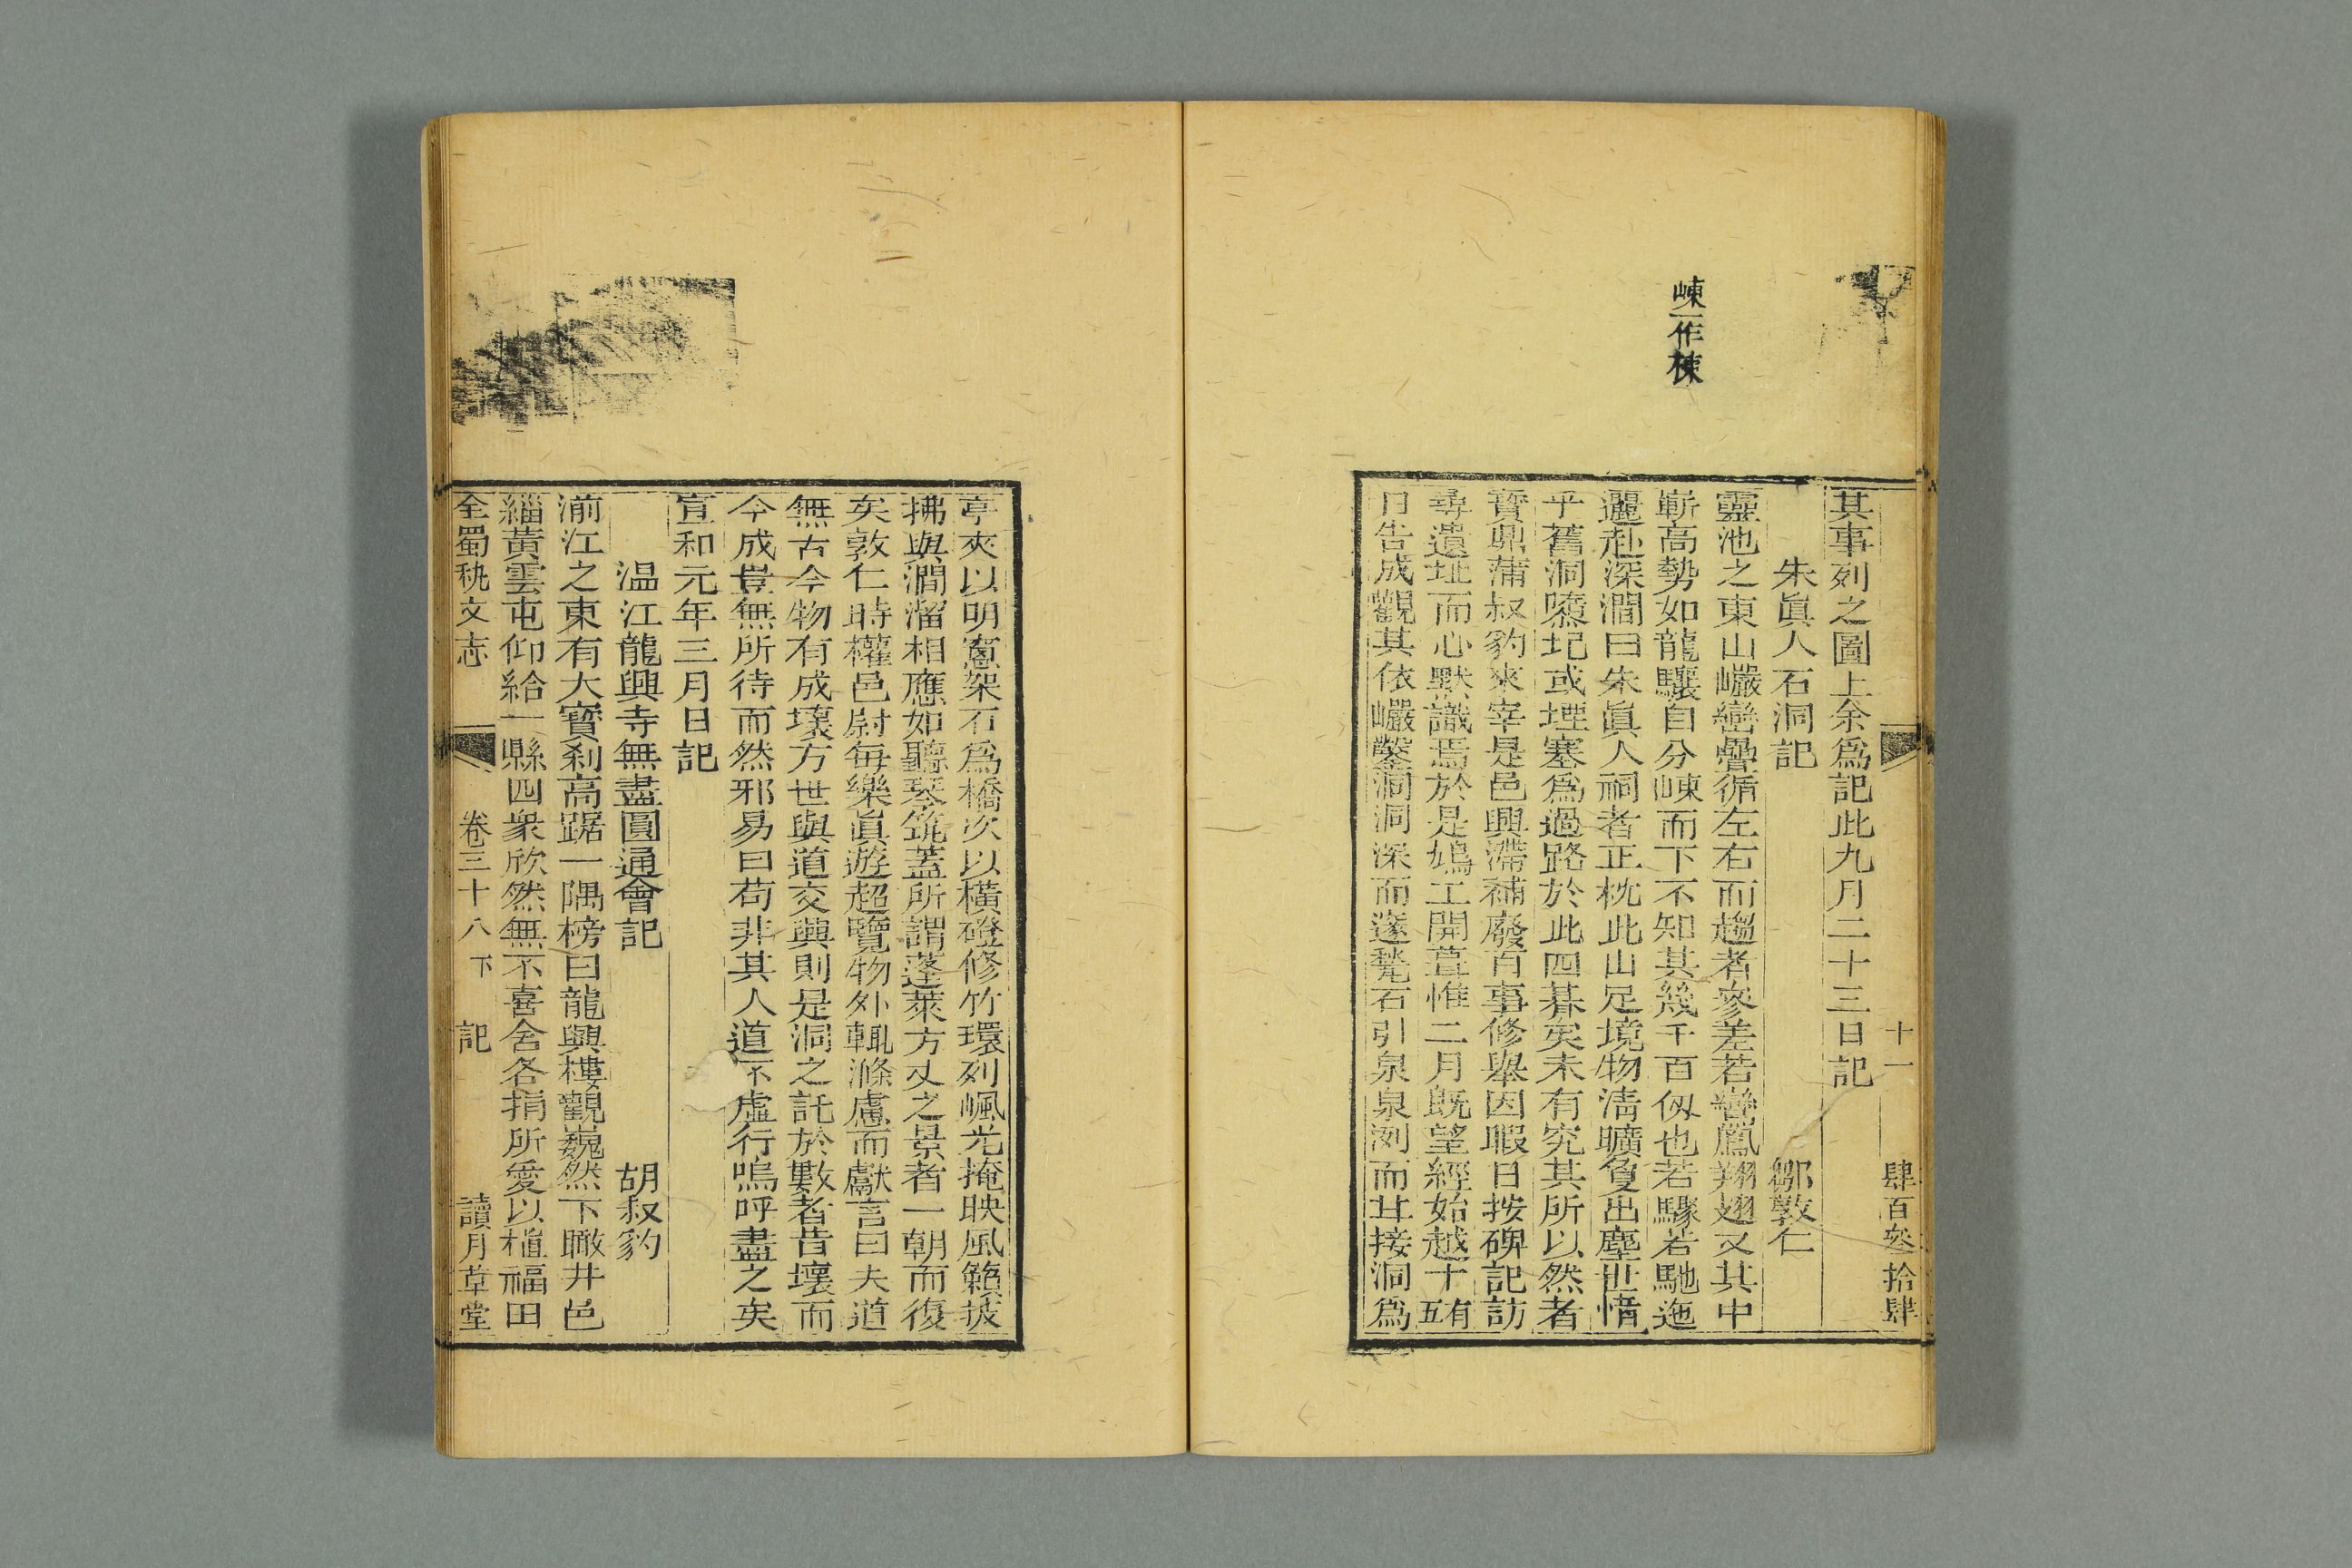 崠一作棟
十一
肆百叁拾肆
其事列之圖上余爲記此九月二十三日記
朱眞人石洞記
鄒敦仁
靈池之東山巗巒疊循左右而趨者參差若鸞鳳翔翅又其中
嶄高勢如龍驤自分崠而下不知其幾千百仭也若驟若馳迤
邐赴深澗曰朱眞人祠者正枕此山足境物淸曠夐出塵世惜
乎舊洞隳圮或堙塞爲過路於此四朞矣未有究其所以然者
寳鼎蒲叔豹來宰是邑興滯補廢百事修舉因暇日按碑記訪
尋遺址而心默識焉於是鳩工開葺惟二月既望經始越十有五
日告成觀其依巗鑿洞洞深而邃甃石引泉泉洌而甘接洞爲
亭夾以明窻架石爲橋次以橫磴修竹環列嵐光掩映風籟披
拂與澗溜相應如聽琴筑蓋所謂蓬萊方丈之景者一朝而復
矣敦仁時權邑尉每樂眞遊超覽物外輒滌慮而獻言曰夫道
無古今物有成壞方世與道交興則是洞之託於數者昔壞而
今成豈無所待而然邪易曰苟非其人道不虛行嗚呼盡之矣
宣和元年三月日記
温江龍興寺無盡圓通會記
胡叔豹
湔江之東有大寳刹高踞一隅榜曰龍興樓觀巍然下瞰井邑
緇黃雲屯仰給一縣四衆欣然無不喜舍各捐所愛以植福田
全蜀秇文志
卷三十八下
記
讀月草堂